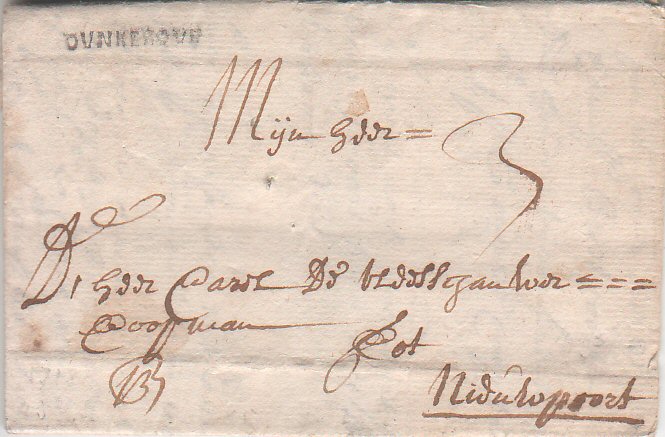 DUNKERQUE
Mijn heer = 3
D, heer Carel De vleesschauwer ===
Coopman
Tot
Nieuwpoort